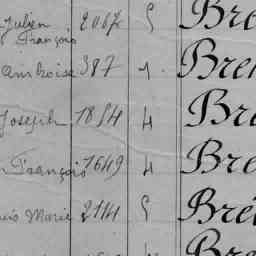 Julien 2067 5 Bre
François
Ambroise 387 1. Bre
Joseph 1854 4 Bre
François 1649 4 Bre
Marie 2141 5 Bré
Bre